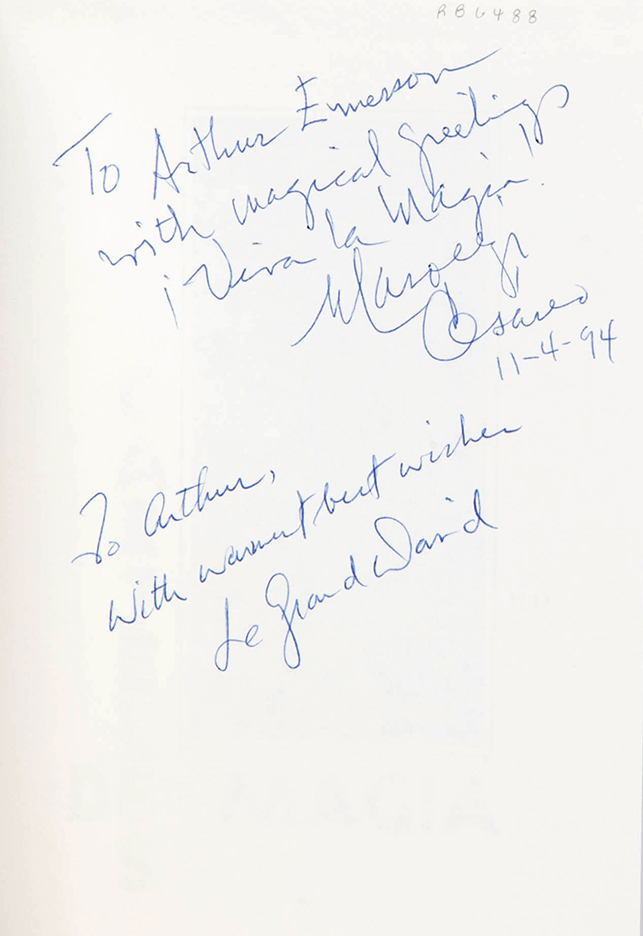 RB6488
To Arthur Emerson
with magical greetings
¡Viva la Magia!
Marco el gi
Cesareo
11-4-94
To Arthur,
with warmest best wishes
Le Grand David